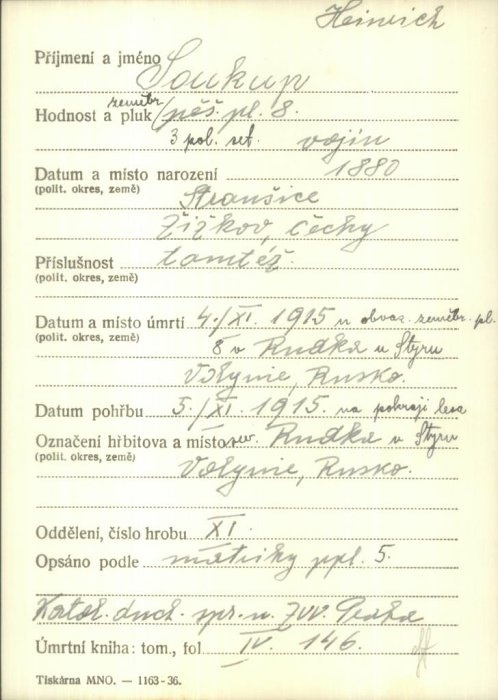 Heinrich
Příjmení a jméno Soukup
Hodnost a pluk zeměbr. pěš. pl. 8.
3 pol. set. vojín
Datum a místo narození 1880
(polit. okres, země) Strašice
Žižkov, Čechy
Příslušnost tamtéž.
(polit. okres, země)
Datum a místo úmrtí 4./XI. 1915 u obvaz. zeměbr. pl.
(polit. okres, země) 8 v Rudka u Styru
Volynie, Rusko.
Datum pohřbu 5./XI. 1915. na pokraji lesa
Označení hřbitova a místo sev. Rudka u Styru
(polit. okres, země)
Volynie, Rusko.
Oddělení, číslo hrobu XI.
Opsáno podle matriky ppl. 5.
Katol. duch. spr. u ZVV. Praha
Úmrtní kniha: tom., fol IV. 146.
Tiskárna MNO. — 1163-36.